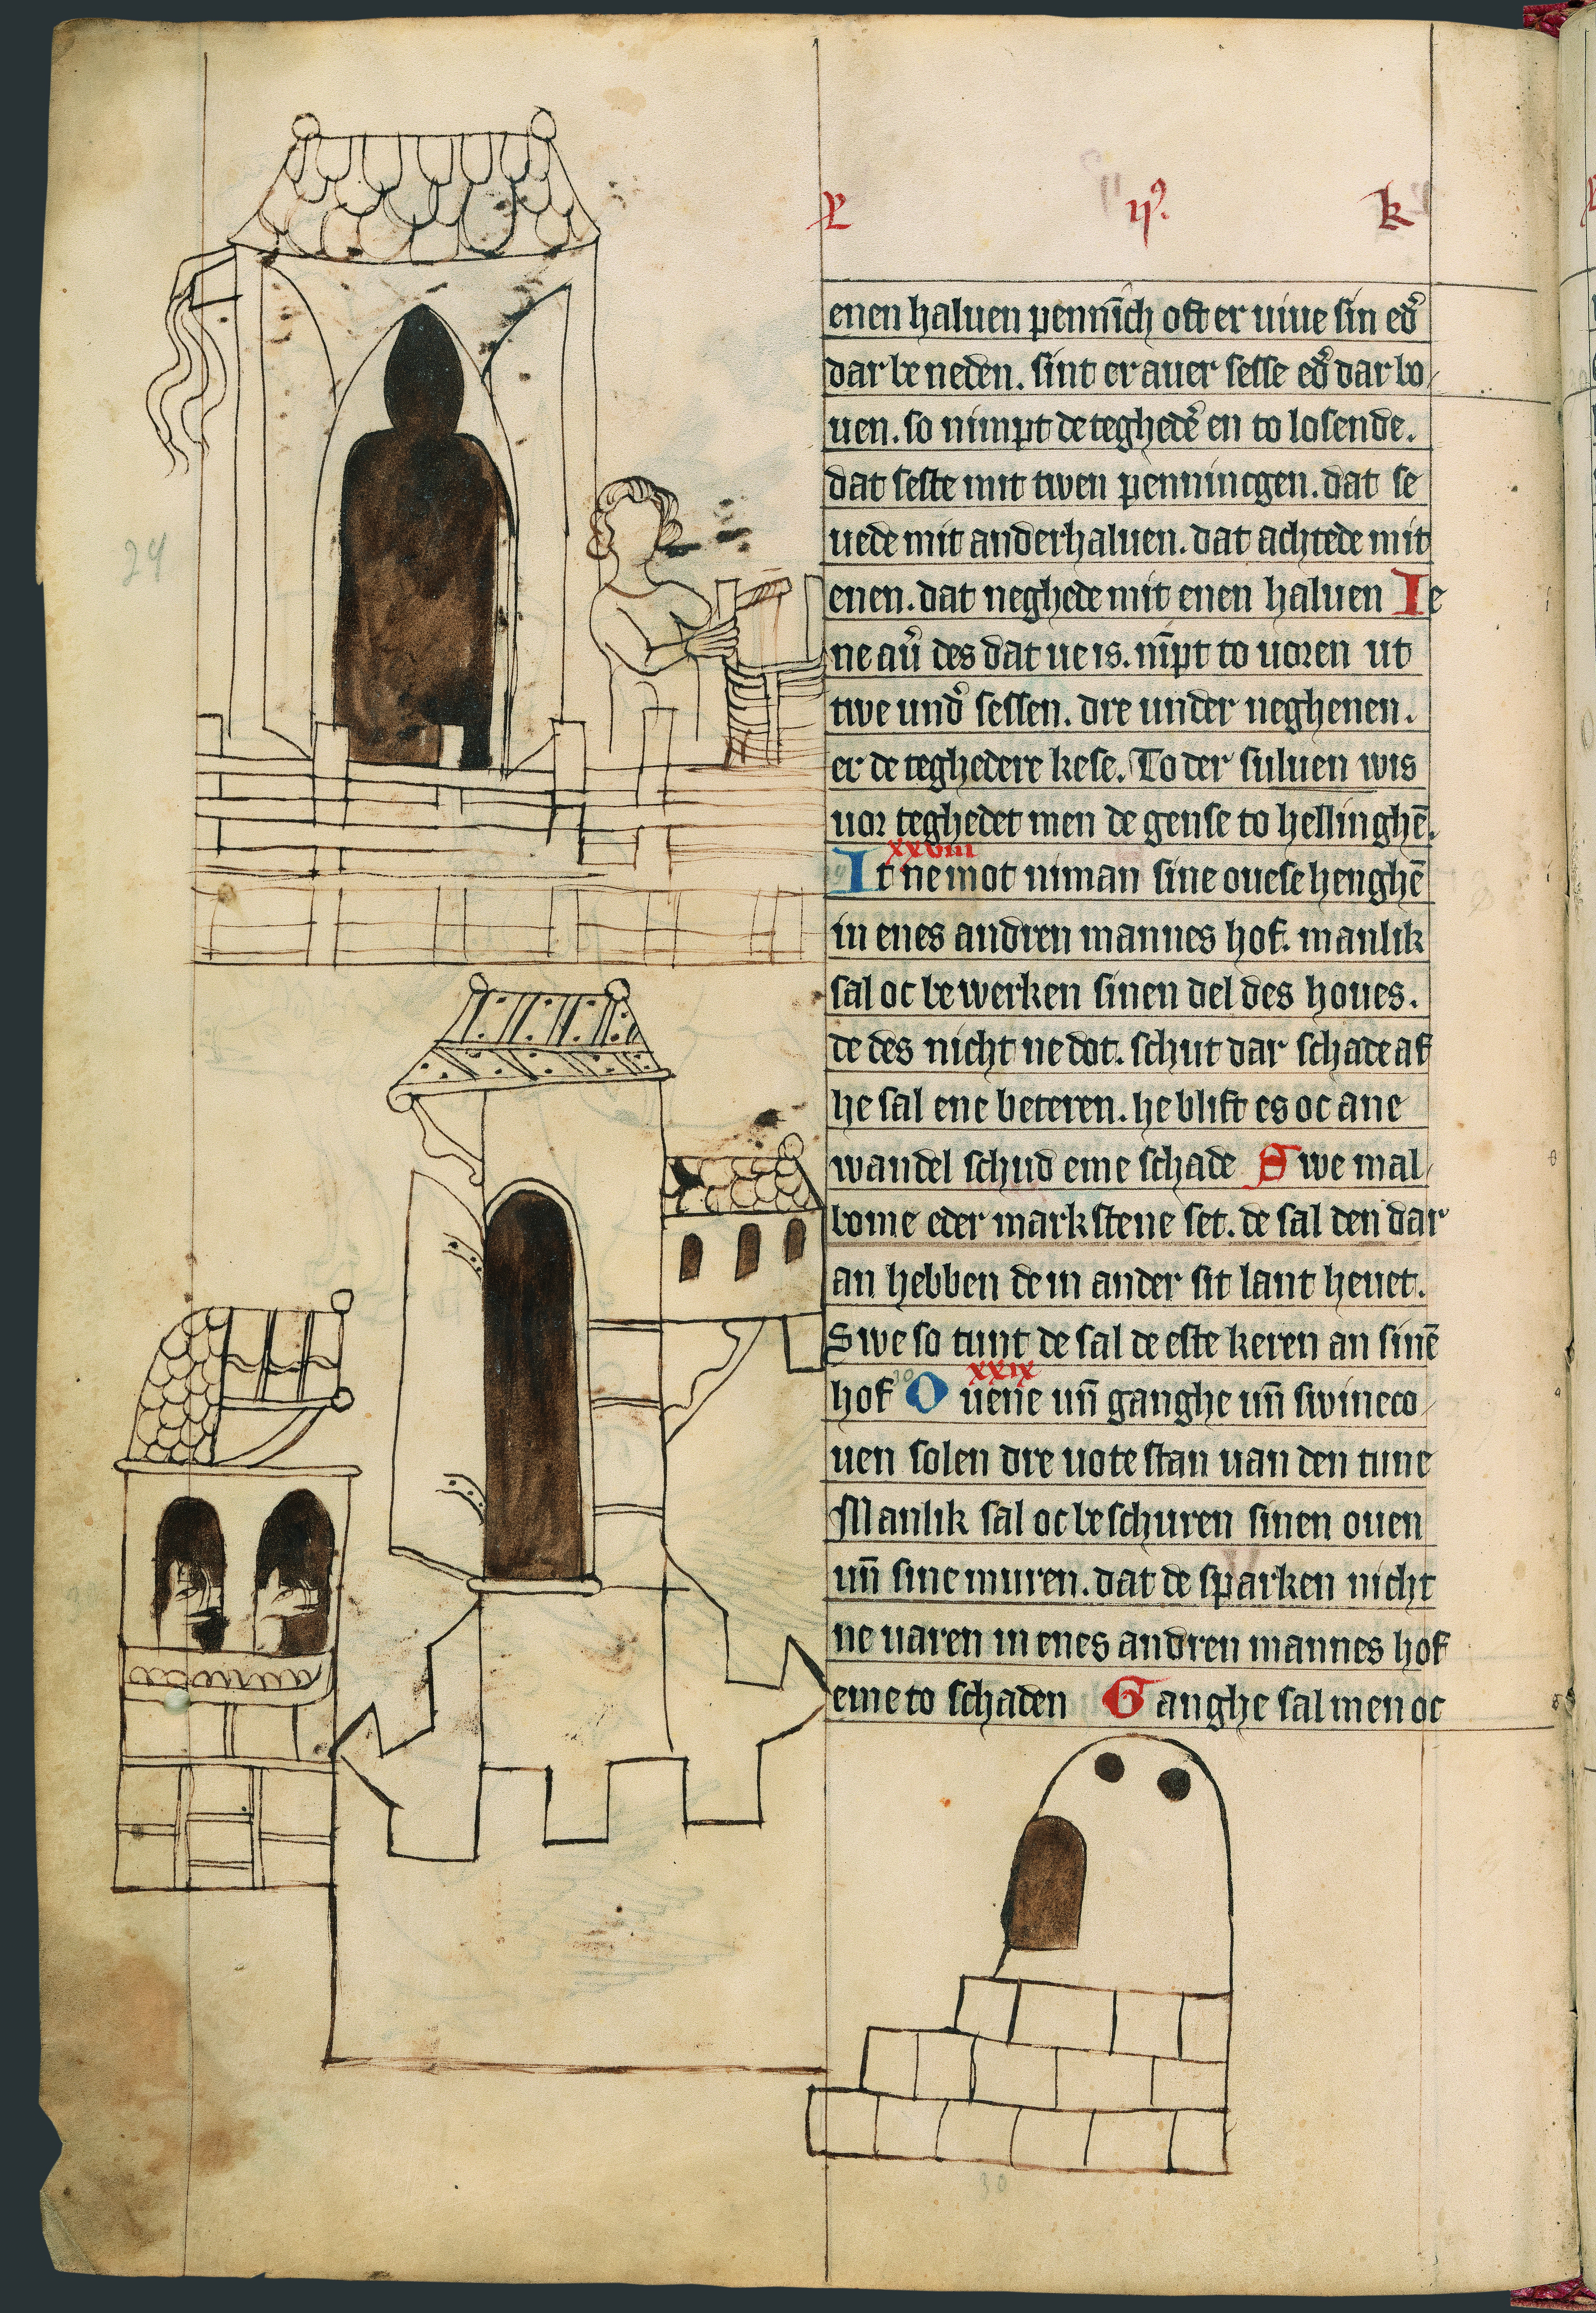 L ij⁹. k
enen haluen pennīch oft er uiue sin ed᷎
dar be neden. sint er auer sesse ed᷎ dar bo
uen. so nimpt de teghedē en to losende.
dat seste mit twen penningen. dat se
uede mit anderhaluen. dat achtede mit
enen. dat neghede mit enen haluen Ie
ne au᷎ des dat ue is. nīpt to uoren ut
twe und᷎ sessen. dre under neghenen.
er de teghedere kese. To der suluen wis
uor teghedet men de gense to hellinghē.
xxviii
It ne mot niman sine ouese henghē
in enes andren mannes hof. manlik
sal oc be werken sinen del des houes.
de des nicht ne dot. schut dar schade af
he sal ene beteren. he blift es oc ane
wandel schud eme schade Swe mal
bome eder markstene set. de sal den dar
an hebben de in ander sit lant heuet.
Swe so tunt de sal de este keren an sinē
xxix
hof Ouene un̄ ganghe un̄ swineco
uen solen dre uote stan uan den tune
Manlik sal oc beschuren sinen ouen
un̄ sine muren. dat de sparken nicht
ne uaren in enes andren mannes hof
eme to schaden Ganghe sal men oc
24
30